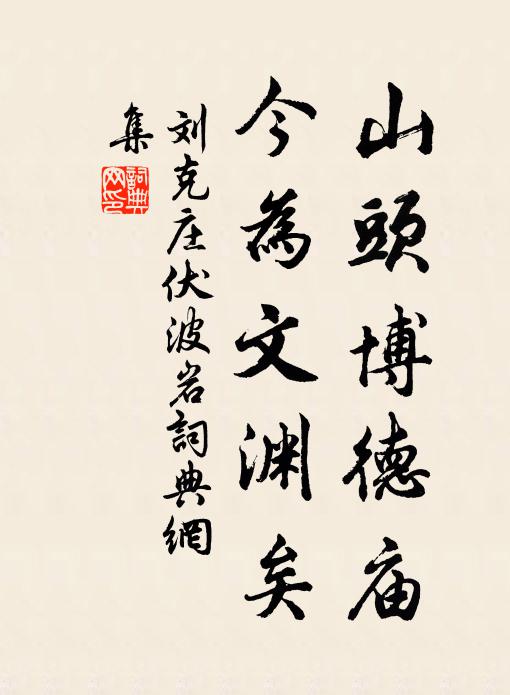 山頭博德庙
今為文渊矣
刘克庄伏波岩詞典網
集
詞典网印